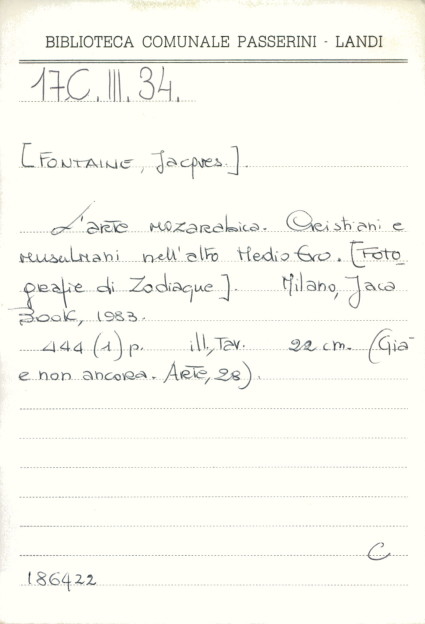 BIBLIOTECA COMUNALE PASSERINI - LANDI
17C.III.34.
[FONTAINE, Jacques.].
L'arte mozarabica. Cristiani e
musulmani nell'alto Medio Evo. [Foto_
grafie di Zodiaque]. Milano, Jaca
Book, 1983.
444 (1) p. ill., Tav. 22 cm. (Già
e non ancora. Arte, 28).
C
186422